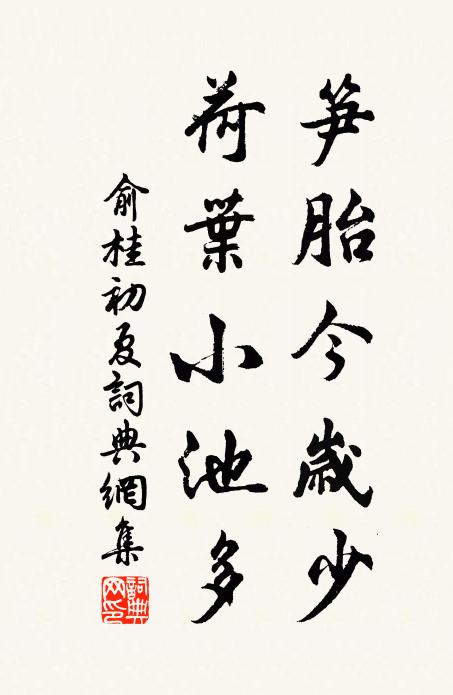 笋胎今歲少
荷葉小池多
俞桂初夏詞典網集
詞典網印